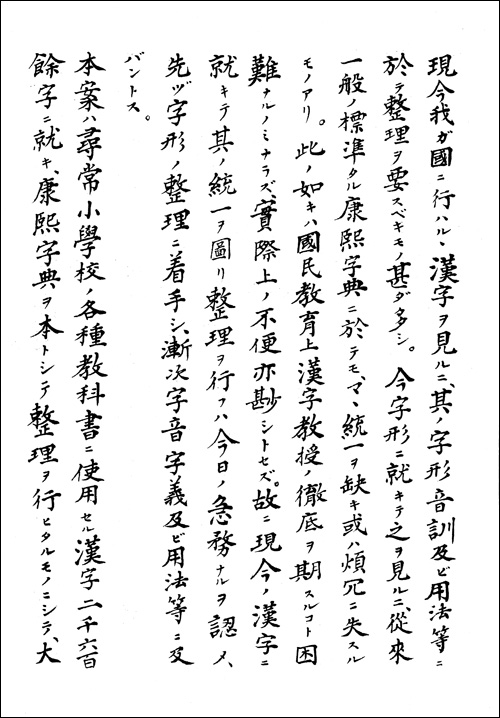 現今我ガ國ニ行ハルヽ漢字ヲ見ルニ、其ノ字形音訓及ビ用法等ニ
於テ整理ヲ要スベキモノ甚ダ多シ。今字形ニ就キテ之ヲ見ルニ、從來
一般ノ標準タル康熙字典ニ於テモ、マヽ統一ヲ缺キ或ハ煩冗ニ失スル
モノアリ。此ノ如キハ國民教育上漢字教授ノ徹底ヲ期スルコト困
難ナルノミナラズ、實際上ノ不便亦尠シトセズ。故ニ現今ノ漢字ニ
就キテ其ノ統一ヲ圖リ整理ヲ行フハ今日ノ急務ナルヲ認メ、
先ヅ字形ノ整理ニ着手シ、漸次字音字義及ビ用法等ニ及
バントス。
本案ハ尋常小學校ノ各種教科書ニ使用セル漢字二千六百
餘字ニ就キ、康熙字典ヲ本トシテ整理ヲ行ヒタルモノニシテ、大